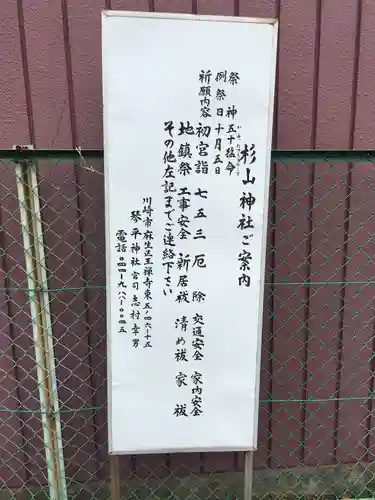 杉山神社ご案内
祭神 五十猛命
いたける
例祭日 十月五日
祈願内容 初宮詣 七五三 厄除 交通安全 家内安全
地鎮祭 工事安全 新居祓 清め祓 家祓
その他左記までご連絡下さい
川崎市麻生区王禅寺東五ノ四六ノ十五
琴平神社宮司 志村幸男
電話〇四四ノ九八八ノ〇〇四五